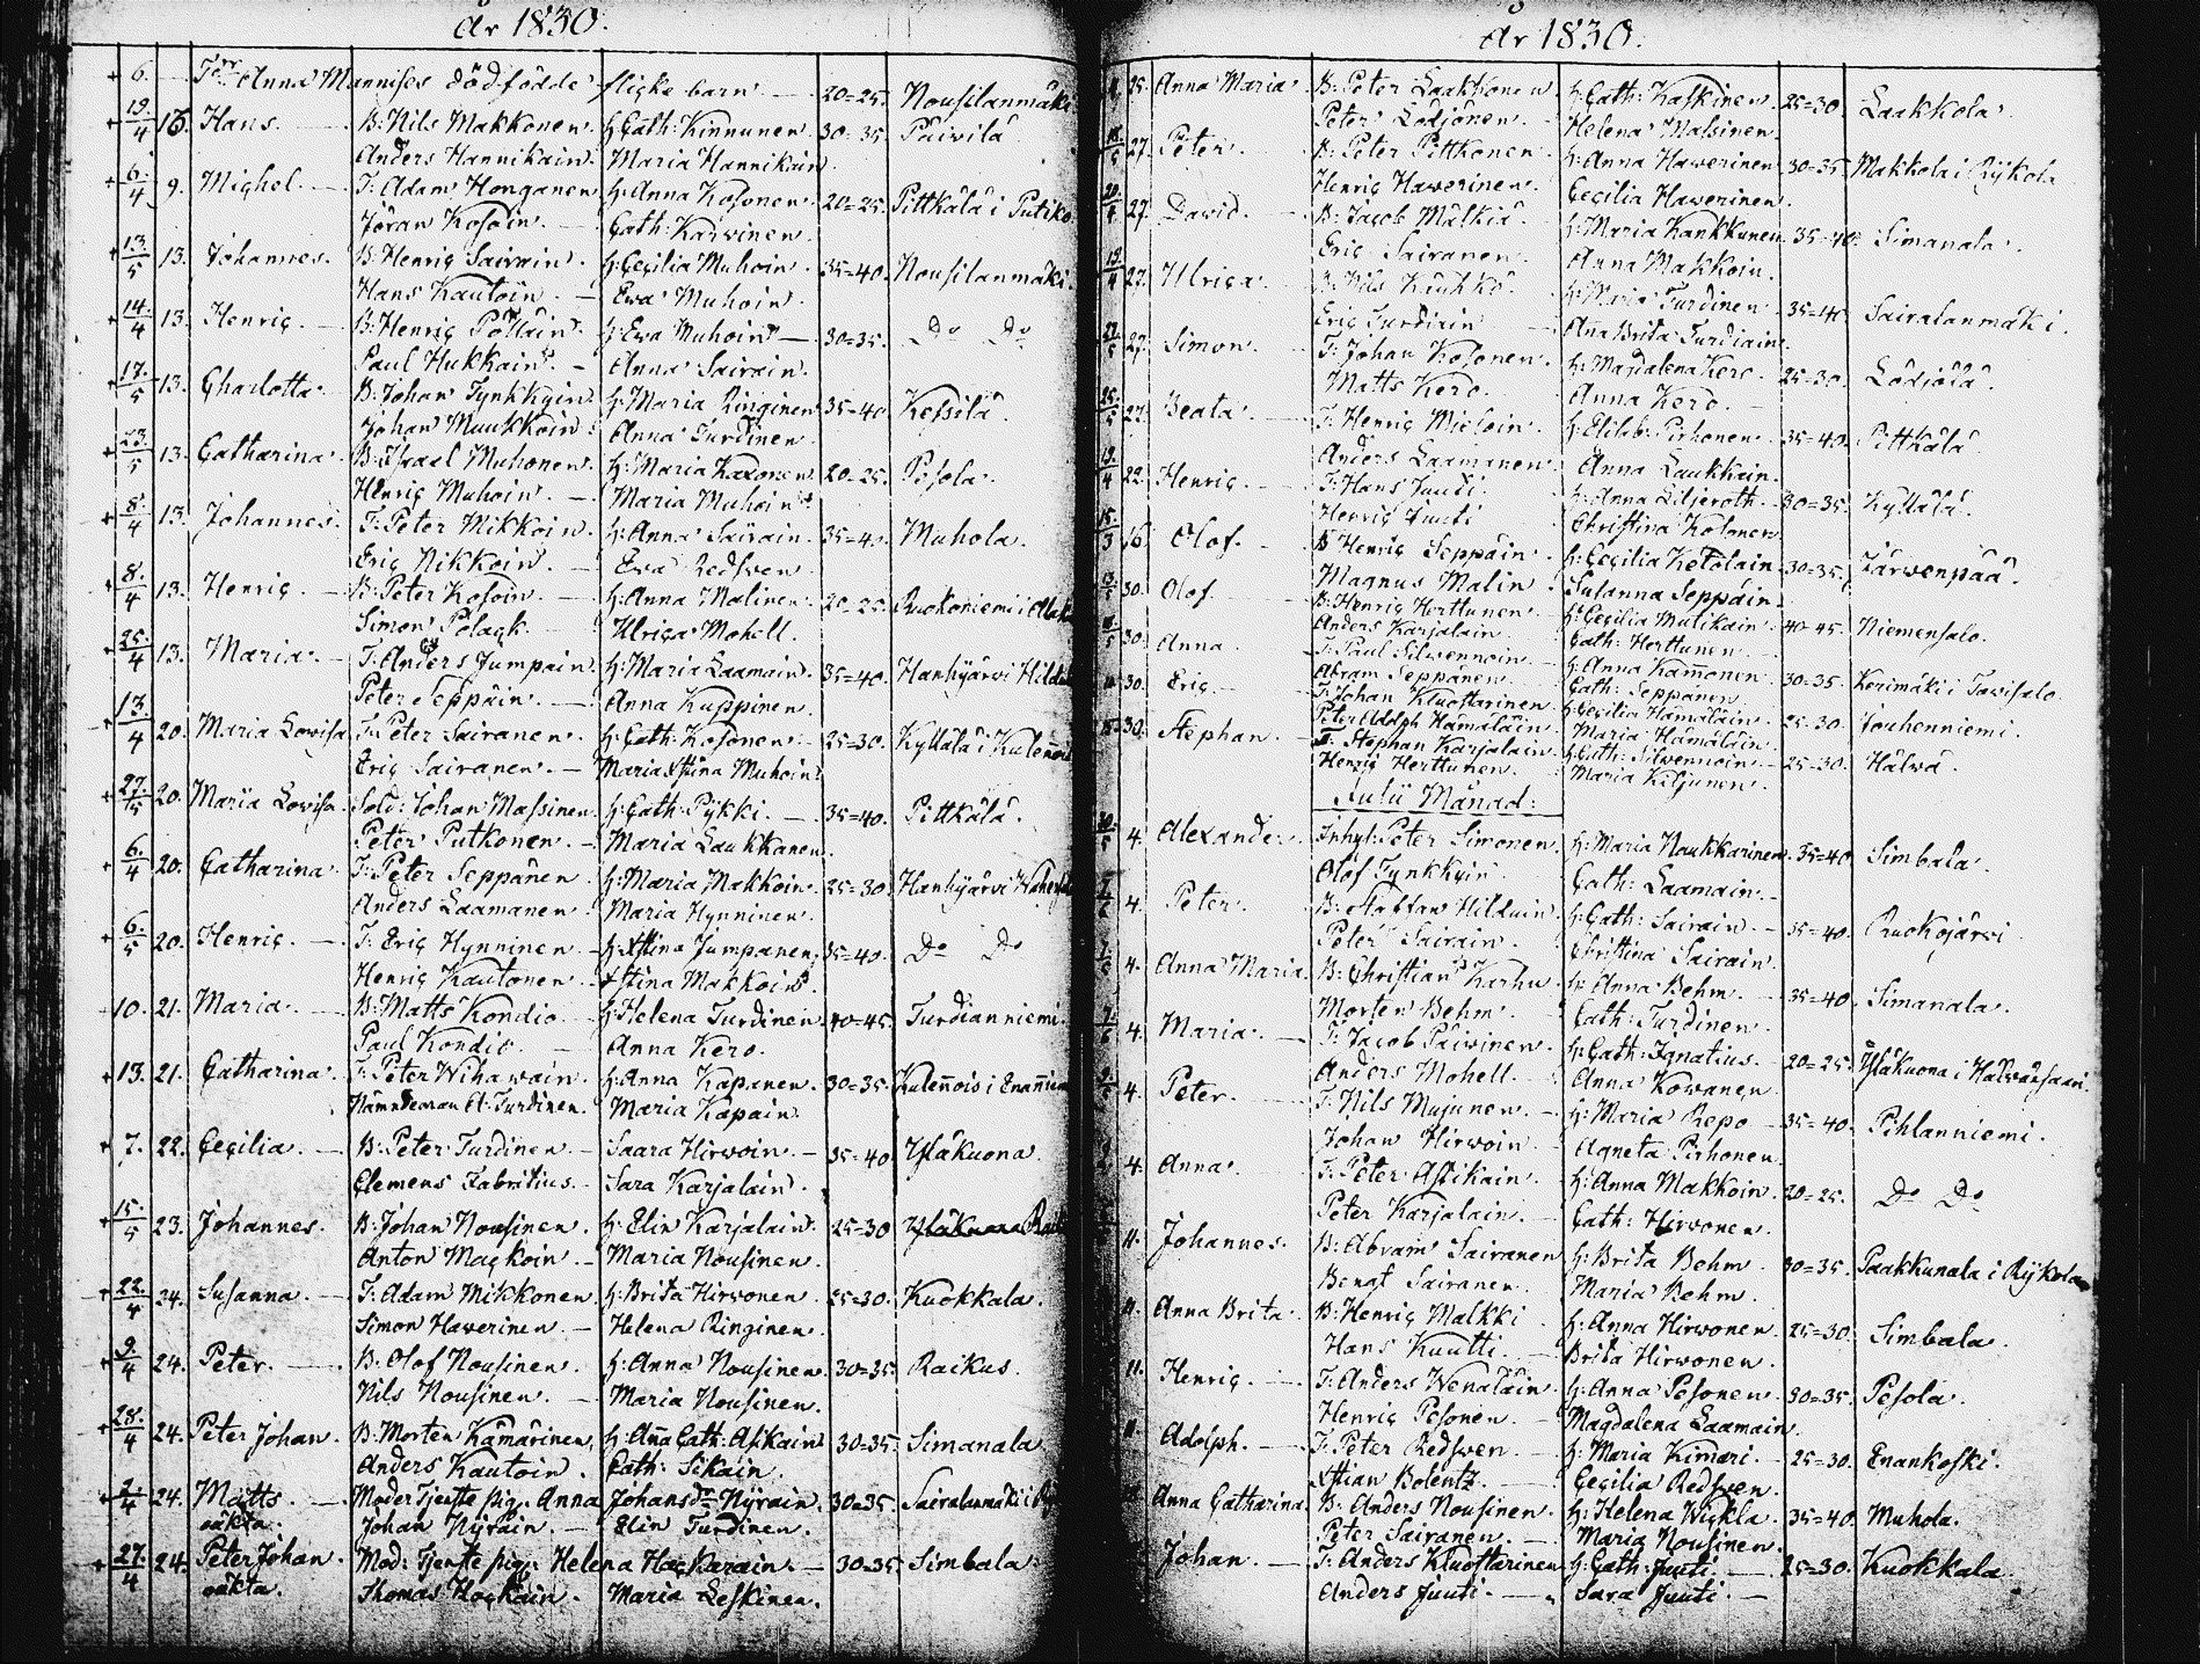 År 1830.
6. — T:r Anna Mannises dödfödde flicke barn — 20=25. Nousilanmäki
19/4 16. Hans. — B: Nils Makkonen. h: Cath: Kinnunen. 30=35. Päivilä
Anders Hannikain. Maria Hannikain.
6/4 9. Michel. — T: Adam Honganen h: Anna Kosonen. 20=25. Pittkälä i Putiko
Jöran Kosoin. — Cath: Karvinen.
13/5 13. Johannes. B: Henric Sairain. h: Cecilia Muhoin. 35=40. Nousilanmäki.
Hans Kautoin. — Ewa Muhoin.
14/4 13. Henric. — B: Henric Pölläin. h: Ewa Muhoin — 30=35. Do Do
Paul Hukkain. — Anna Sairain.
17/5 13. Charlotta. B: Johan Tynkkyin. h: Maria Ringinen 35=40. Kessilä.
Johan Muukkoin. Anna Turdinen
23/5 13. Catharina. B: Israel Muhonen. h: Maria Kaxonen. 20=25. Pesola.
Henric Muhoin. — Maria Muhoin.
8/4 13. Johannes. T: Peter Mikkoin. h: Anna Sairain. 35=40. Muhola.
Eric Nikkoin. — Ewa Redsven
8/4 13. Henric. — B: Peter Kosoin. — h: Anna Malinen. 20=25. Ruokoniemi i
Simon Polack. — Ulrica Mohell.
25/4 13. Maria. — T: Anders Jumpain. h: Maria Laamain. 35=40. Hanhijärvi
Peter Seppäin. — Anna Kuppinen.
13/4 20. Maria Lovisa T: Peter Sairanen. h: Cath: Kosonen. 25=30. Kyllälä i Kulennois
Eric Sairanen. — Maria Xstina Muhoin
27/5 20. Maria Lovisa. Sold: Johan Massinen. h: Cath: Pykki. — 35=40. Pittkälä.
Peter Putkonen. — Maria Laukkanen.
6/4 20. Catharina. T: Peter Seppänen h: Maria Makkoin. 25=30. Hanhijärvi
Anders Laamanen. Maria Hynninen.
6/5 20. Henric. — T: Eric Hynninen — h: Xstina Jumpanen. 35=40. Do Do
Henric Kautonen. — Xstina Makkoin.
10. 21. Maria. — B: Matts Kondio. h: Helena Turdinen. 40=45. Turdianniemi.
Paul Kondio. — Anna Kero.
13. 21. Catharina. T: Peter Wihawain. h: Anna Kapanen. 30=35. Kulennois i
Nämndeman A: Turdinen. Maria Kapain.
7. 22. Cecilia. — B: Peter Turdinen. — Saara Hirvoin. — 35=40. Ysläkuona.
Clemens Fabritius. — Sara Karjalain.
15/5 23. Johannes. B: Johan Nousinen. h: Elin Karjalain. 25=30 Ysläkuona
Anton Mackoin. — Maria Nousinen.
22/4 24. Susanna. — T: Adam Mikkonen. h: Brita Hirvonen. 25=30. Kuokkala.
Simon Haverinen. — Helena Ringinen.
9/4 24. Peter. — B: Olof Nousinen. h: Anna Nousinen. 30=35. Raikus.
Nils Nousinen. — Maria Nousinen.
28/4 24. Peter Johan. B: Morten Kämärinen. h: Anna Cath: Asikain 30=35. Simanala
Anders Kautoin. Cath: Sikain.
2/4 24. Matts. — Moder Tjenste pig. Anna Johansdr Nyräin. 30=35. Sairalanmäki i
oäkta. Johan Nyräin. — Elin Turdinen.
27/4 24. Peter Johan. Mod: Tjenste pig: Helena Hackarain. — 30=35. Simbala.
oäkta. Thomas Hockain. Maria Leskinen.
År 1830.
25. Anna Maria. B: Peter Laakkonen. h: Cath: Kaskinen. 25=30. Laakkola.
Peter Lödjönen. Helena Massinen.
27. Peter. B: Peter Pittkonen. h: Anna Haverinen 30=35. Makkola i Rykola
Henric Haverinen. Cecilia Haverinen.
27. David. B: Jacob Mälkiä. h: Maria Kankkunen. 35=40. Simanala.
Eric Sairanen. Anna Makkoin.
27. Ulrica. B: Nils Kiuhko. h: Maria Turdinen. 35=40. Sairalanmäki.
Eric Turdiain — Anna Brita Turdiain.
27. Simon. T: Johan Kosonen. h: Magdalena Kero. 25=30. Lödjölä.
Matts Kero. Anna Kero. —
25/5 27. Beata. T: Henric Mieloin. h: Elisb: Pirhonen. 35=40. Pittkälä.
Anders Laamanen. Anna Laukkain.
19/4 22. Henric. T: Hans Juudi. h: Anna Liljeroth. 30=35. Kyllälä.
Henric Juuti Christina Kolonen
15/3 16. Olof. B Henric Seppäin. h: Cecilia Ketolain 30=35. Järvenpää.
Magnus Malin. Susanna Seppäin.
30. Olof B: Henric Herttunen. h: Cecilia Mutikain. 40=45. Niemensalo.
Anders Karjalain. Cath: Herttunen.
30. Anna. T: Paul Silvennoin. h: Anna Kammonen. 30=35. Kerimäki i Tavisalo
Abram Seppänen. Cath: Seppänen.
30. Eric. T: Johan Kluostarinen. h: Cecilia Hämäläin. 25=30. Jouhenniemi.
Peter Adolph Hämäläin. Maria Hämäläin.
30. Stephan. T: Stephan Karjalain. h: Cath: Silvennoin. 25=30. Hälvä.
Henric Herttunen. Maria Kiljunen.
Julii Månad:
4. Alexander. Inhys: Peter Simonen. h: Maria Naukkarinen. 35=40. Simbala.
Olof Tynkkyin. Cath: Laamain.
4. Peter. B: Staffan Hilduin. h: Cath: Sairain. — 35=40. Ruokojärvi
Peter Sairain. Christina Sairain.
4. Anna Maria. B: Christian Karhu. h: Anna Behm. — 35=40. Simanala.
Morten Behm. Cath: Turdinen.
4. Maria. — T: Jacob Päivinen. h: Cath: Ignatius. 20=25. Ysläkuona i
Anders Mohell. Anna Kowanen.
4. Peter. T: Nils Mujunen. — h: Maria Repo — 35=40. Pihlanniemi.
Johan Hirvoin. Agneta Pirhonen.
4. Anna. T: Peter Asikain. h: Anna Makkoin. 20=25. Do Do
Peter Karjalain. — Cath: Hirvonen.
11. Johannes. B: Abram Sairanen h: Brita Behm. 30=35. Paakkunala i Rykola
Bengt Sairanen. Maria Behm.
11. Anna Brita. B: Henric Malkki. h: Anna Hirvonen. 25=30. Simbala.
Hans Kuutti. — Brita Hirvonen.
11. Henric. — T: Anders Wenäläin. h: Anna Pesonen. 30=35. Pesola.
Henric Pesonen. — Magdalena Laamain.
11. Adolph. — T: Peter Redsven. — h: Maria Kimari. — 25=30. Enankoski.
Xstian Bolentz. — Cecilia Redsven.
Anna Catharina. B: Anders Nousinen. h: Helena Wickla. 35=40. Muhola.
Peter Sairanen. — Maria Nousinen.
Johan. — T: Anders Kluostarinen h: Cath: Juuti. — 25=30. Kuokkala
Anders Juuti. — Sara Juuti. —